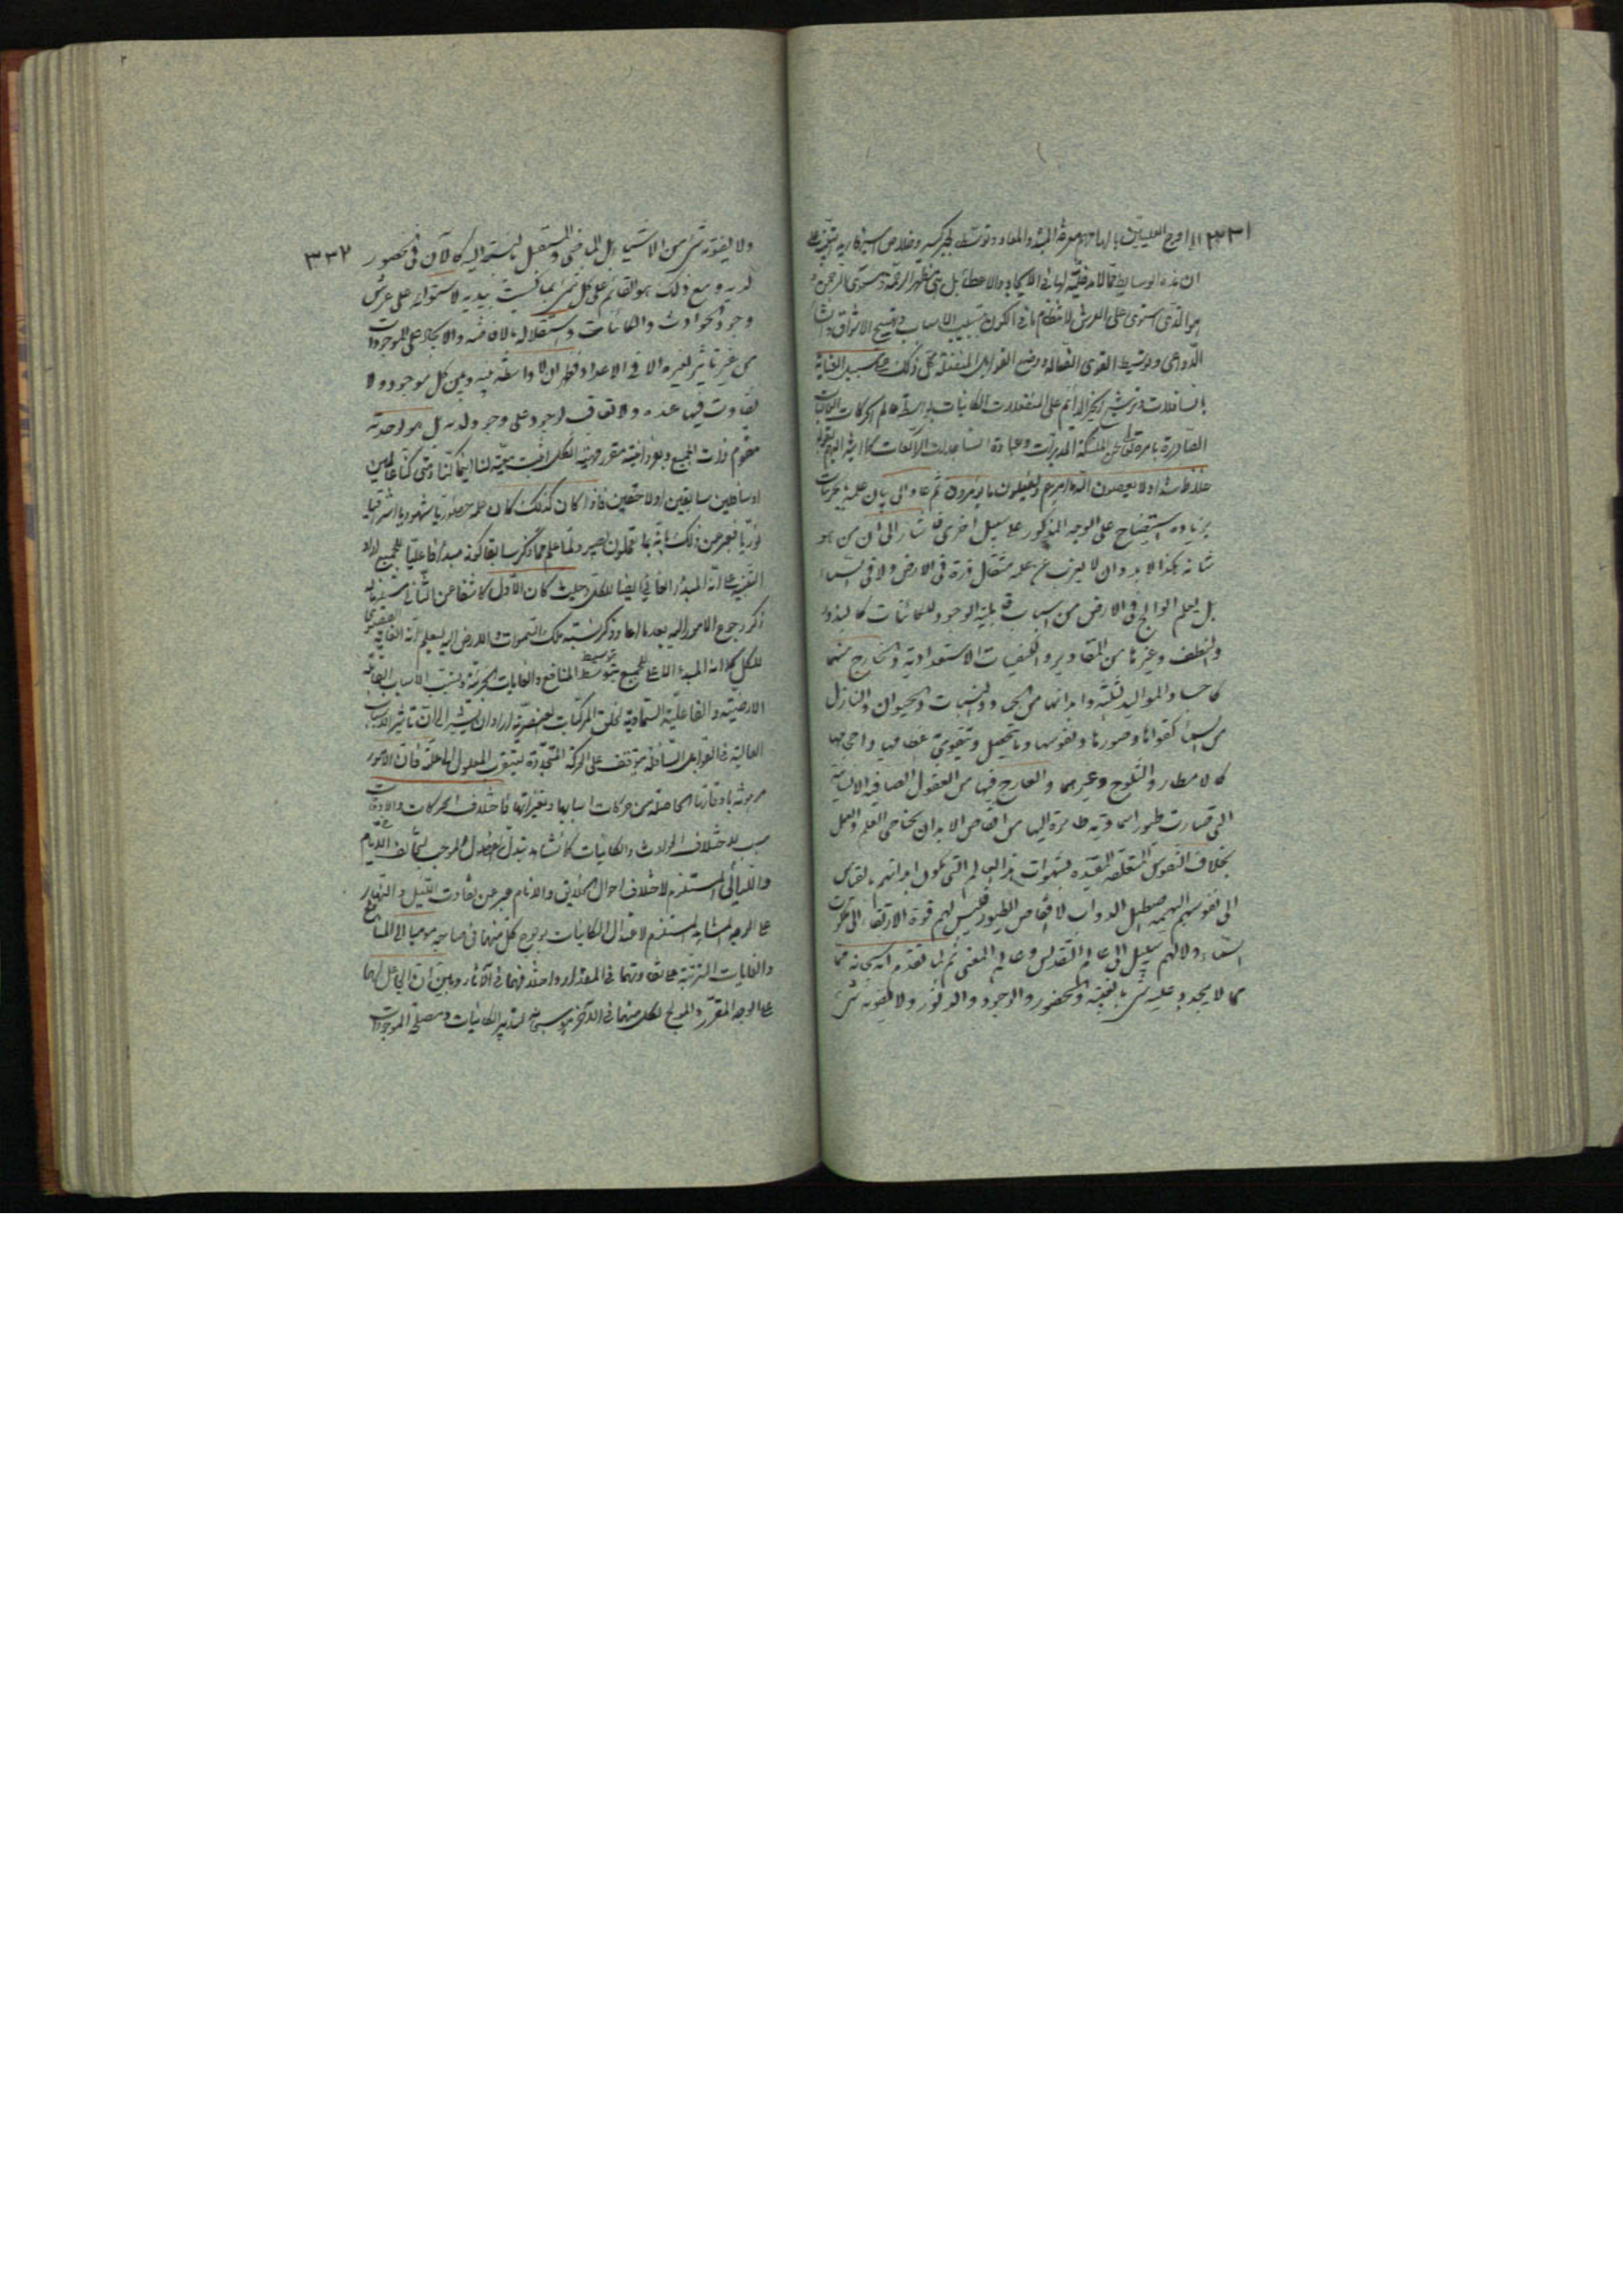 ٣٣١
ان هذه الوسايط مما لا مدخلية لها في الايجاد والاعطاء بل هي مظهر الرحمة ومستوى الرحمن
هو الذي استوى على العرش لانتظام ما في الكون بتسبيب الاسباب وتهييج الاشواق
الدواعي وتوسيط القوى الفعالة ووضع القوابل المنفعلة كل ذلك على سبيل العناية
بالسافلات وترشيح الخير الدائم على المنفعلات الكائنات بواسطة عالم الحركات
غلاظ شداد لا يعصون الله ما امرهم ويفعلون ما يؤمرون ثم عاد الى بيان علمه بجزئيات
بزيادة استيضاح على الوجه المذكور على سبيل اخرى فاشار الى ان من هو
شانه هكذا لا بد وان لا يعزب عن علمه مثقال ذرة في الارض ولا في السماء
بل يعلم الوالج في الارض من اسباب قابلية الوجود للكائنات كالبذور
والنطف وغيرها من المقادير والكيفيات الاستعدادية والخارج منها
كاجساد المواليد الثلثة وابدانها من الجماد والنبات والحيوان والنازل
من السماء كقواها وصورها ونفوسها وما تحصيل وتقويم عطا فيها واحتجبها
كالامطار والثلوج وغيرهما والعارج فيها من العقول الصافية الانسانية
التي صارت طيورا سماوية طائرة اليها من اقفاص الابدان بجناحي العلم والعمل
بخلاف النفوس المتعلقة المقيدة بشهوات هذا العالم التي تكون ابدانهم بالقياس
الى نفوسهم البهيمية اصطبل الدواب لا اقفاص الطيور فليس لهم قوة الارتقاء الى ملكوت
السماء ولا لهم سبيل الى عالم القدس وعالم المعنى ثم لما تقدم انه سبحانه
مما لا يتجدد عليه شيء بالغيبة والحضور والوجود والدثور ولا يفوته شيء
٣٣٢
ولا يفوته شيء من الاشياء بل الماضي والمستقبل بالنسبة اليه كالآن في حضور
لديه ومع ذلك هو القائم على كل نفس بما كسبت بيديه لاستوائه على عرش
وجود الحوادث والكائنات واستقلاله بالافاضة والايجاد على الموجودات
من غير تاثير لغيره الا في الاعداد فظهر ان لا واسطة بينه وبين كل موجود ولا
تفاوت فيها عنده ولا تعاقب لوجود على وجود لديه بل هو بوحدته
مقوم ذات الجميع وبفردانيته مقرر مهية الكل اثبت معيته لنا اينما كنا ومتى كنا عالمين
او سافلين سابقين او لاحقين فاذا كان كذلك كان علمه حضوريا شهوديا اشراقيا
نوريا فعبر عن ذلك بانه بما تعملون بصير ولما علم مما ذكر سابقا كونه مبدأ فاعليا للجميع اراد
التنبيه على انه المبدأ الغائي ايضا للكل وحيث كان الاول كاشفا عن الثاني
ذكر رجوع الامور اليه بعد ما اعاد ذكر نسبة ملك السموات والارض اليه ليعلم انه الغاية القصوى
للكل كما انه المبدء الاعلى للجميع بتوسط المنافع والغايات الجزئية وتسبب الاسباب القابلة
الارضية والفاعلية السماوية لخلق المركبات العنصرية اراد ان يشير الى ان تاثير الاسباب
العالية في القوابل السافلة يتوقف على الحركة المتجددة ليتوقف المعلول بها علة فان الامور
مرهونة باوقاتها الحاصلة من حركات اسبابها وتغيراتها فاختلاف الحركات والاوقات
سبب لاختلاف الحوادث والكائنات كما نشاهد تبدل الفصول الموجب لتخالف الايام
والليالي المستلزم لاختلاف احوال الخلايق والانام فعبر عن تفاوت الليل والنهار
على الوجه المشاهد المستلزم لاعتدال الكائنات بولوج كل منهما في صاحبه موميا الى المنافع
والغايات المترتبة على تفاوتهما في المقدار واختلافهما في الآثار وبين ان الجاعل لهما
على الوجه المقرر والمولج لكل منهما في الآخر هو سبحانه لتدبير الكائنات ومصلحة الموجودات